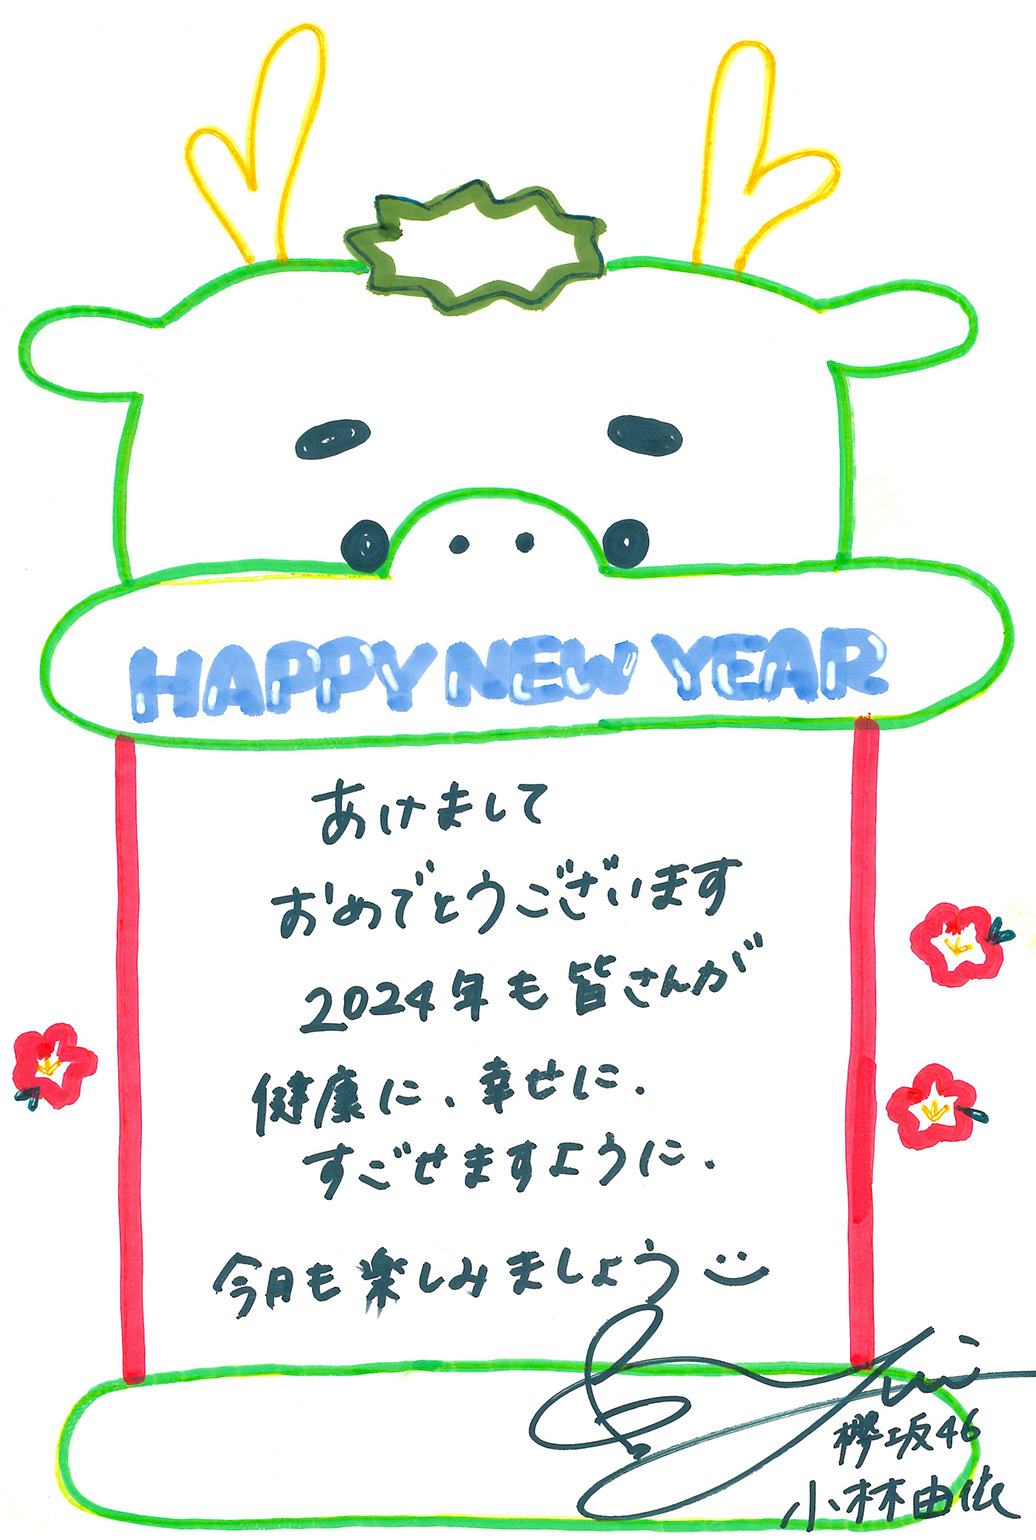 HAPPY NEW YEAR
あけまして
おめでとうございます
2024年も皆さんが
健康に、幸せに、
すごせますように。
今月も楽しみましょう
Yui
欅坂46
小林由依